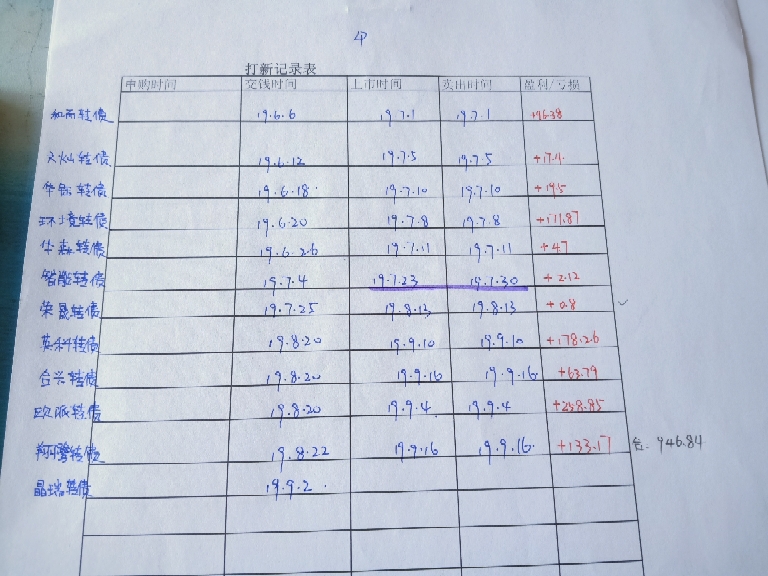 打新记录表
申购时间 交钱时间 上市时间 卖出时间 盈利/亏损
和而转债 19.6.6 19.7.1 19.7.1 +96.38
转债 19.6.12 19.7.5 19.7.5
转债 19.6.18 19.7.10 19.7.10 +19.5
环境转债 19.6.20 19.7.8 19.7.8 +111.87
华森转债 19.6.26 19.7.11 19.7.11 +47
智能转债 19.7.4 19.7.23 19.7.30 +2.12
荣晟转债 19.7.25 19.8.13 19.8.13 +0.8
英科转债 19.8.20 19.9.10 19.9.10 +178.26
合兴转债 19.8.20 19.9.16 19.9.16 +63.79
欧派转债 19.8.20 19.9.4 19.9.4 +258.85
翔鹭转债 19.8.22 19.9.16 19.9.16 +133.17 946.84
晶瑞转债 19.9.2